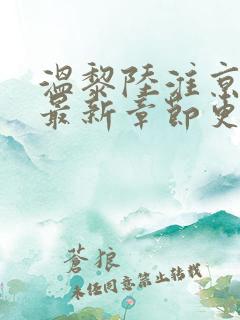 温黎陆淮京
最新章节更
苍狼
未经同意禁止转载